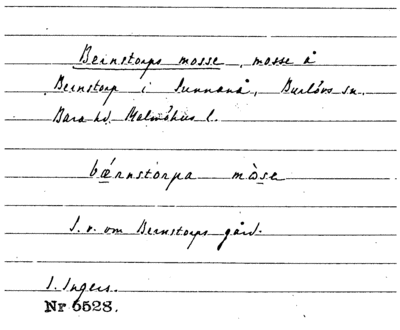 Bernstorps mosse, mosse å
Bernstorp i Sunnanå, Burlövs sn.
Bara hd. Malmöhus l.
bǽrnstorpa mòse
S. v. om Bernstorps gård.
I. Ingers.
Nr 5528.